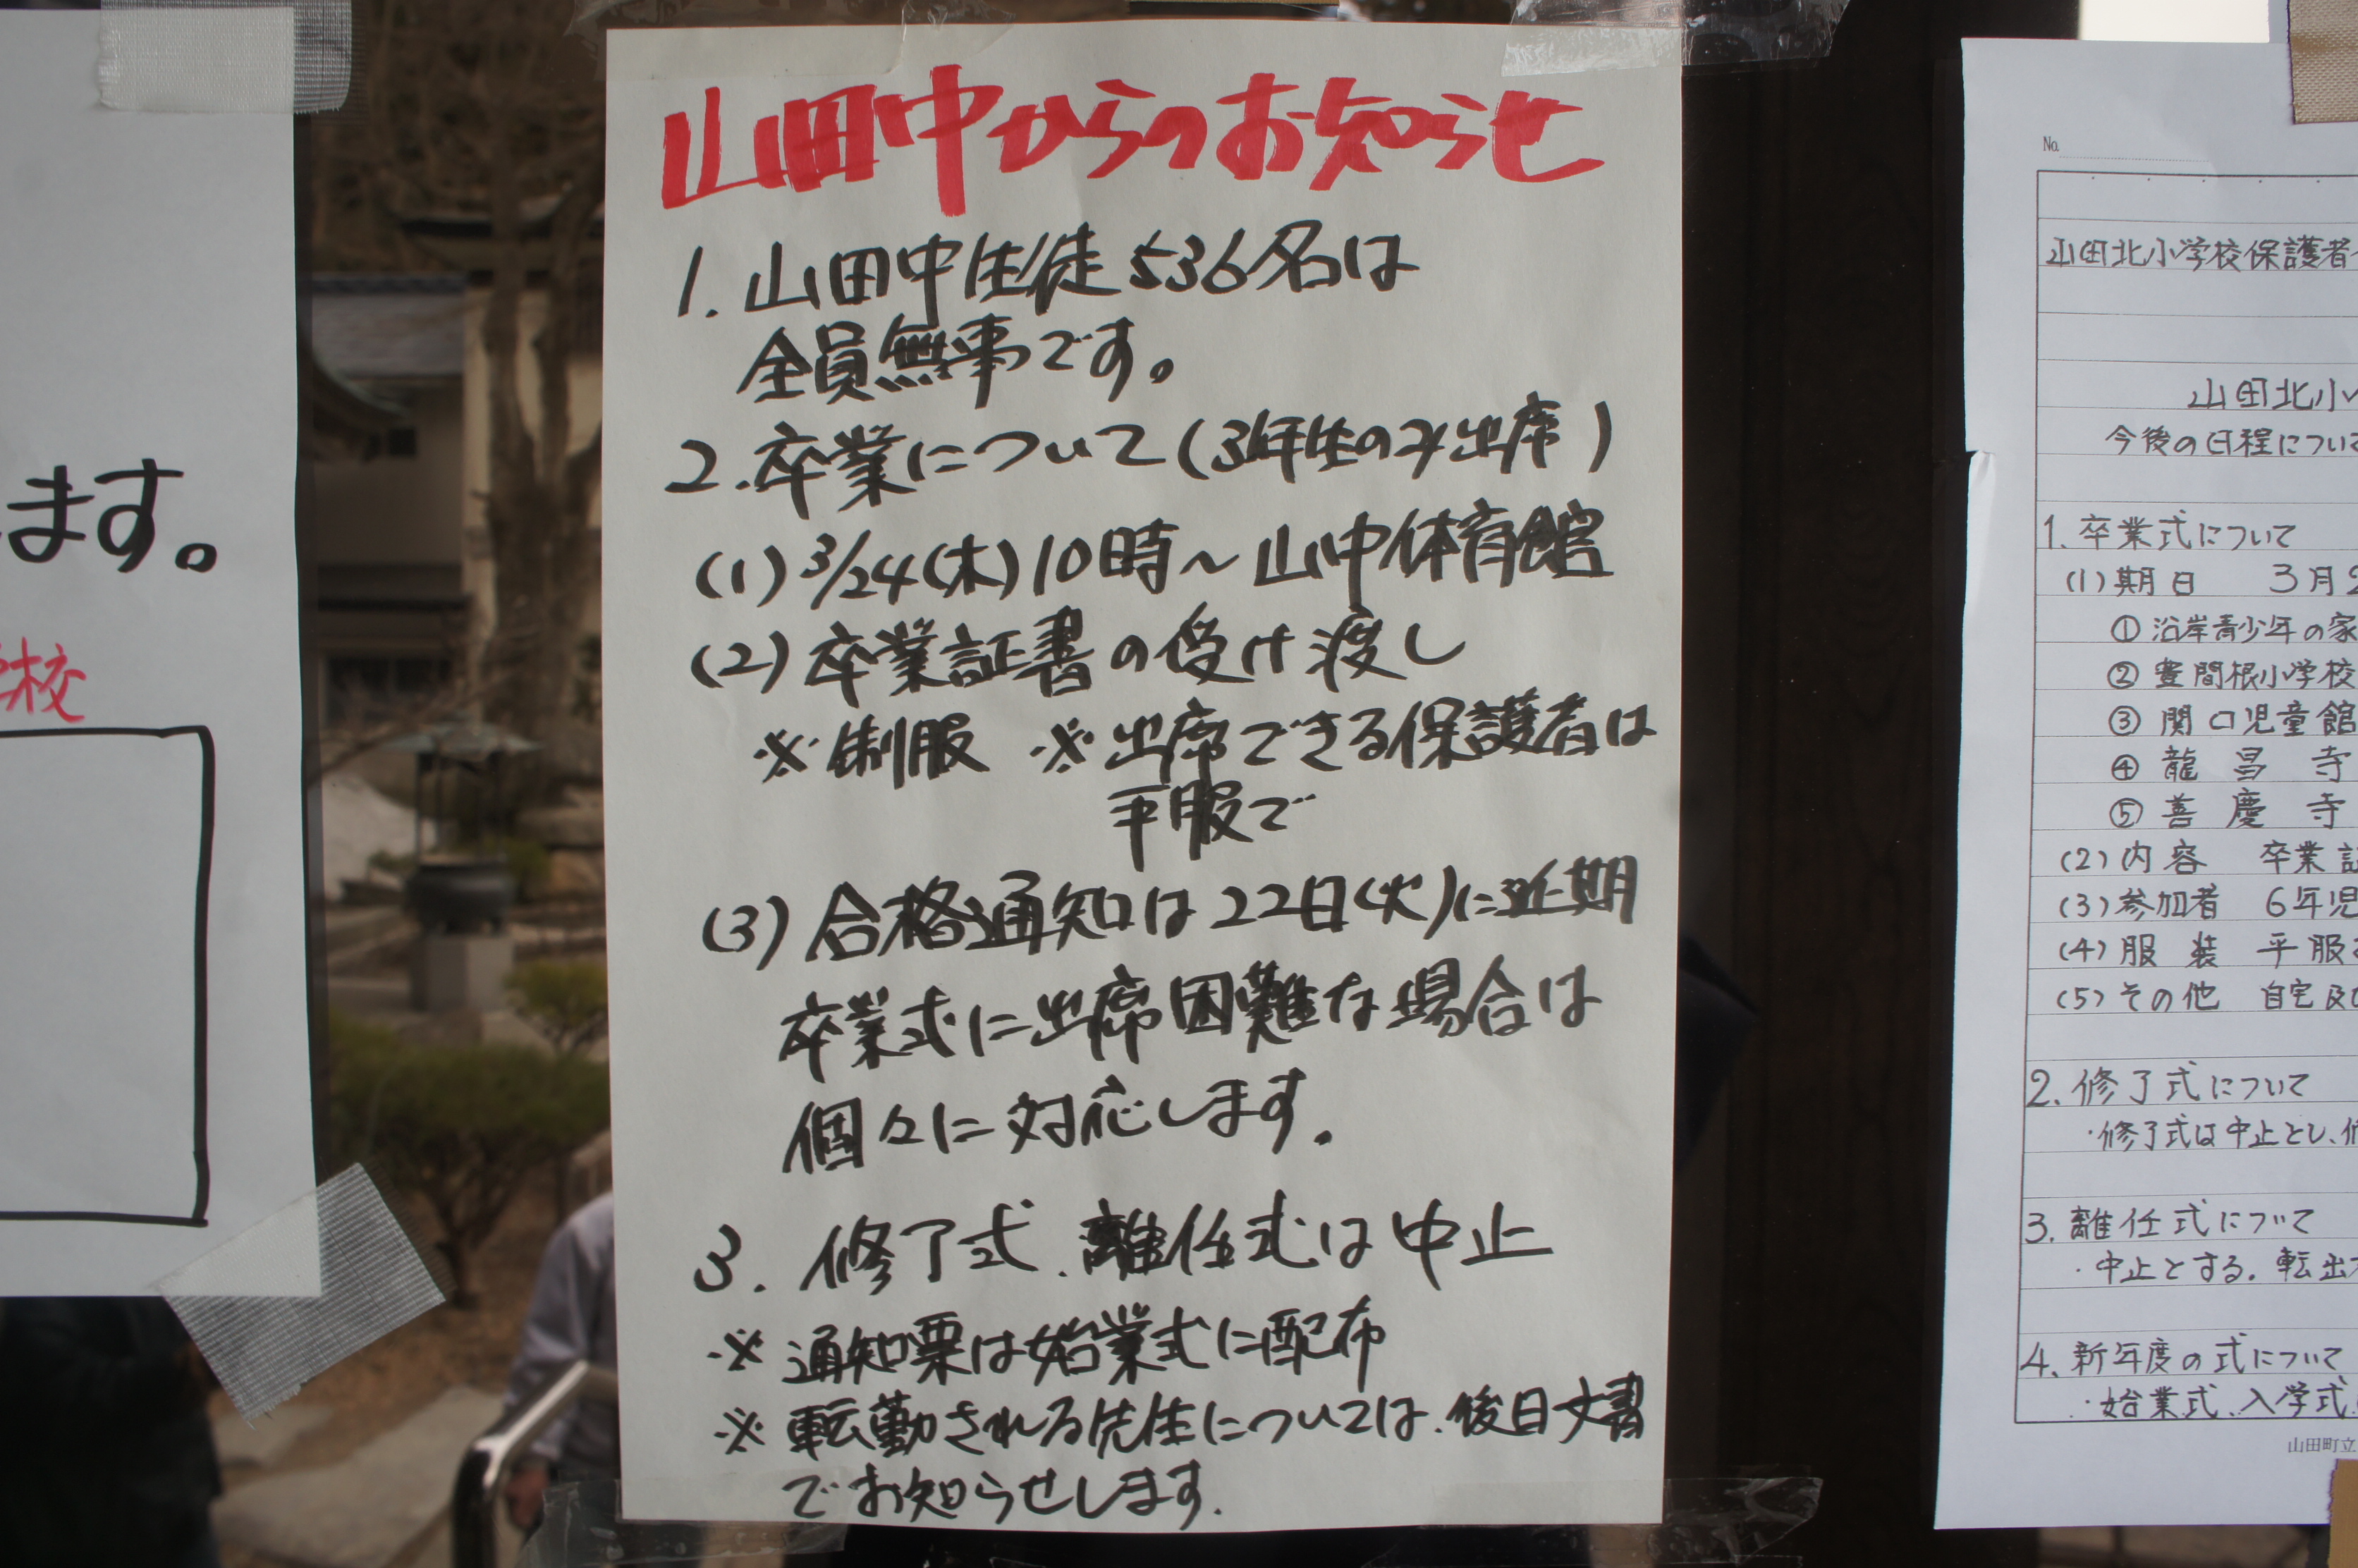 ます。
学校
山田中からのお知らせ
1. 山田中生徒536名は
全員無事です。
2. 卒業について(3年生のみ出席)
(1) 3/24(木)10時~山中体育館
(2) 卒業証書の受け渡し
※制服 ※出席できる保護者は
平服で
(3) 合格通知は22日(火)に延期
卒業式に出席困難な場合は
個々に対応します.
3. 修了式、離任式は中止
※ 通知票は始業式に配布
※ 転勤される先生については、後日文書
でお知らせします.
No.
山田北小学校保護者
山田北小
今後の日程につい
1. 卒業式について
(1) 期日 3月2
① 沿岸青少年の家
② 豊間根小学校
③ 関口児童館
④ 龍昌寺
⑤ 善慶寺
(2) 内容 卒業
(3) 参加者 6年児
(4) 服装 平服
(5) その他 自宅及び
2. 修了式について
・修了式は中止とし、
3. 離任式について
・中止とする. 転出
4. 新年度の式について
・始業式、入学式
山田町立